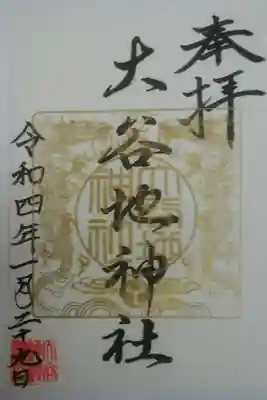 奉拝
大谷地神社
令和四年一月二十九日